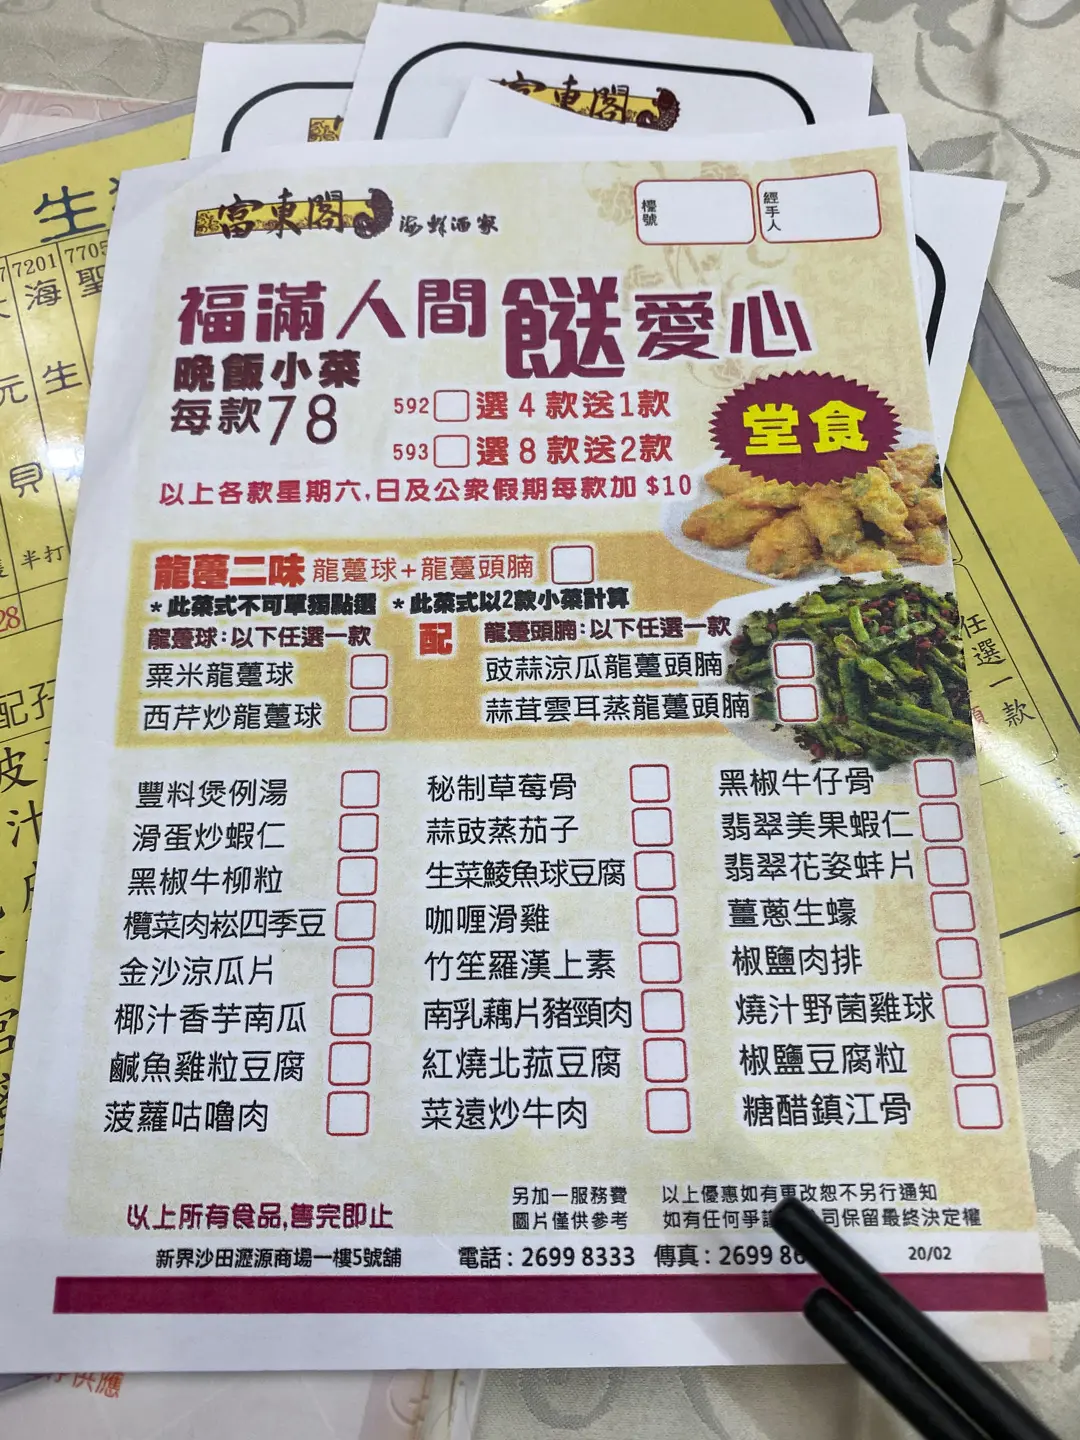 富東閣
富東閣 海鮮酒家
檯號
經手人
福滿人間餸愛心
晚飯小菜
每款78
592 選4款送1款
593 選8款送2款
堂食
以上各款星期六,日及公眾假期每款加 $10
龍躉二味 龍躉球+龍躉頭腩
*此菜式不可單獨點選 *此菜式以2款小菜計算
龍躉球:以下任選一款 配 龍躉頭腩:以下任選一款
粟米龍躉球 豉蒜涼瓜龍躉頭腩
西芹炒龍躉球 蒜茸雲耳蒸龍躉頭腩
豐料煲例湯 秘制草莓骨 黑椒牛仔骨
滑蛋炒蝦仁 蒜豉蒸茄子 翡翠美果蝦仁
黑椒牛柳粒 生菜鯪魚球豆腐 翡翠花姿蚌片
欖菜肉崧四季豆 咖喱滑雞 薑蔥生蠔
金沙涼瓜片 竹笙羅漢上素 椒鹽肉排
椰汁香芋南瓜 南乳藕片豬頸肉 燒汁野菌雞球
鹹魚雞粒豆腐 紅燒北菰豆腐 椒鹽豆腐粒
菠蘿咕嚕肉 菜遠炒牛肉 糖醋鎮江骨
以上所有食品,售完即止
另加一服務費 以上優惠如有更改恕不另行通知
圖片僅供參考 如有任何爭 司保留最終決定權
新界沙田瀝源商場一樓5號舖 電話:2699 8333 傳真:2699 8 20/02
生
7201 7705
海
元 生
貝
半打
28
配
皮
汁
任選一款
供應